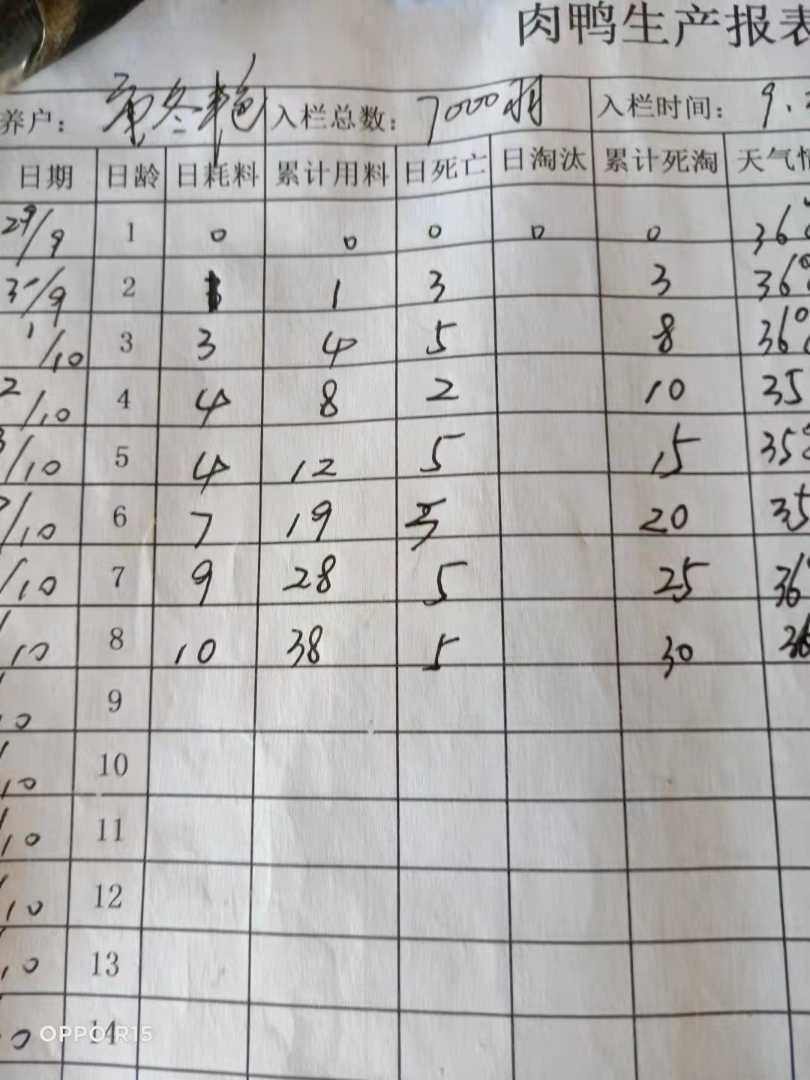 肉鸭生产报表
养户： 冬艳 入栏总数：7000羽 入栏时间：9.
日期 日龄 日耗料 累计用料 日死亡 日淘汰 累计死淘 天气情
29/9 1 0 0 0 0 0 36°
30/9 2 1 1 3 3 36°
1/10 3 3 4 5 8 36°
2/10 4 4 8 2 10 35
3/10 5 4 12 5 15 35°
/10 6 7 19 5 20 35
/10 7 9 28 5 25 36°
/10 8 10 38 5 30 36
10 9
/10 10
/10 11
/10 12
10 13
0 14
OPPO R15